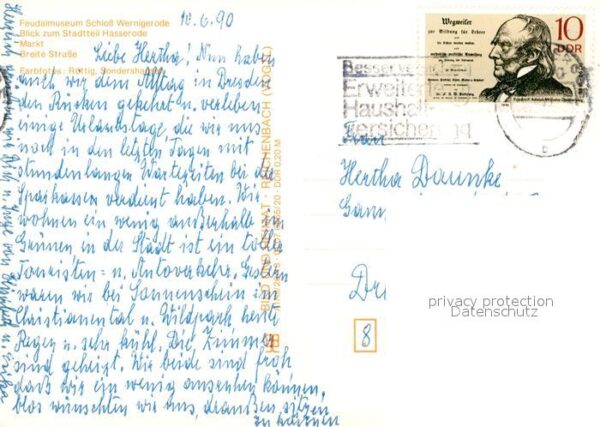 Feudalmuseum Schloß Wernigerode
Blick zum Stadtteil Hasserode
Markt
Breite Straße
Farbfotos: Rüttig, Sondershausen
10.6.90
Liebe Hertha! Nun haben
auch wir dem Alltag in Dresden
den Rücken gekehrt u. verleben
einige Urlaubstage, die wir uns
noch in den letzten Tagen mit
stundenlangen Wartezeiten bei der
Sparkasse verdient haben. Wir
wohnen ein wenig außerhalb im
Grünen in der Stadt ist ein toller
Touristen- u. Autoverkehr. Gestern
waren wir bei Sonnenschein im
Christianental u. Wildpark, heute
Regen u. sehr kühl. Die Zimmer
sind geheizt. Wir beide sind froh
daß wir ein wenig ausruhen können,
blos wünschten wir uns, draußen sitzen
zu können
Herzliche
BILD UND HEIMAT · REICHENBACH (VOGTL)
DDR 0,20 M
Wegweiser
zur Bildung für Lehrer
10
DDR
Erweiterte
Haushalt
versicherung
Frau
Hertha
Dr
8
privacy protection
Datenschutz